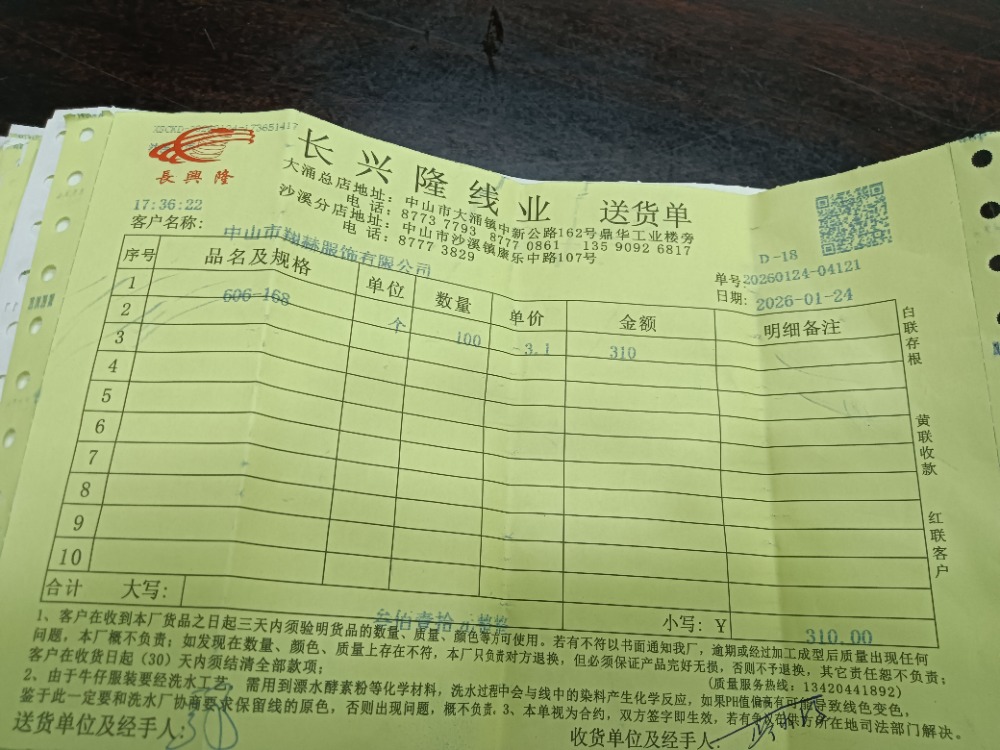 長興隆
长兴隆线业 送货单
大涌总店地址：中山市大涌镇中新公路162号鼎华工业楼旁
电话：8773 7793 8777 0861 135 9092 6817
沙溪分店地址：中山市沙溪镇康乐中路107号
电话：8777 3829
17:36:22
D-18
客户名称：中山市翔赫服饰有限公司
单号：20260124-04121
日期：2026-01-24
序号 品名及规格 单位 数量 单价 金额 明细备注
1 606-168 个 100 3.1 310
2
3
4
5
6
7
8
9
10
白联存根
黄联收款
红联客户
合计 大写：叁佰壹拾 整 小写：Y 310.00
1、客户在收到本厂货品之日起三天内须验明货品的数量、质量、颜色等方可使用。若有不符以书面通知我厂，逾期或经过加工成型后质量出现任何
问题，本厂概不负责；如发现在数量、颜色、质量上存在不符，本厂只负责对方退换，但必须保证产品完好无损，否则不予退换，其它责任恕不负责；
客户在收货日起（30）天内须结清全部款项；
(质量服务热线：13420441892)
2、由于牛仔服装要经洗水工艺，需用到漂水酵素粉等化学材料，洗水过程中会与线中的染料产生化学反应，如果PH值偏高有可能导致线色变色，
鉴于此一定要和洗水厂协商要求保留线的原色，否则出现问题，概不负责。3、本单视为合约，双方签字即生效，若有争议由供方所在地司法部门解决。
送货单位及经手人：
收货单位及经手人：